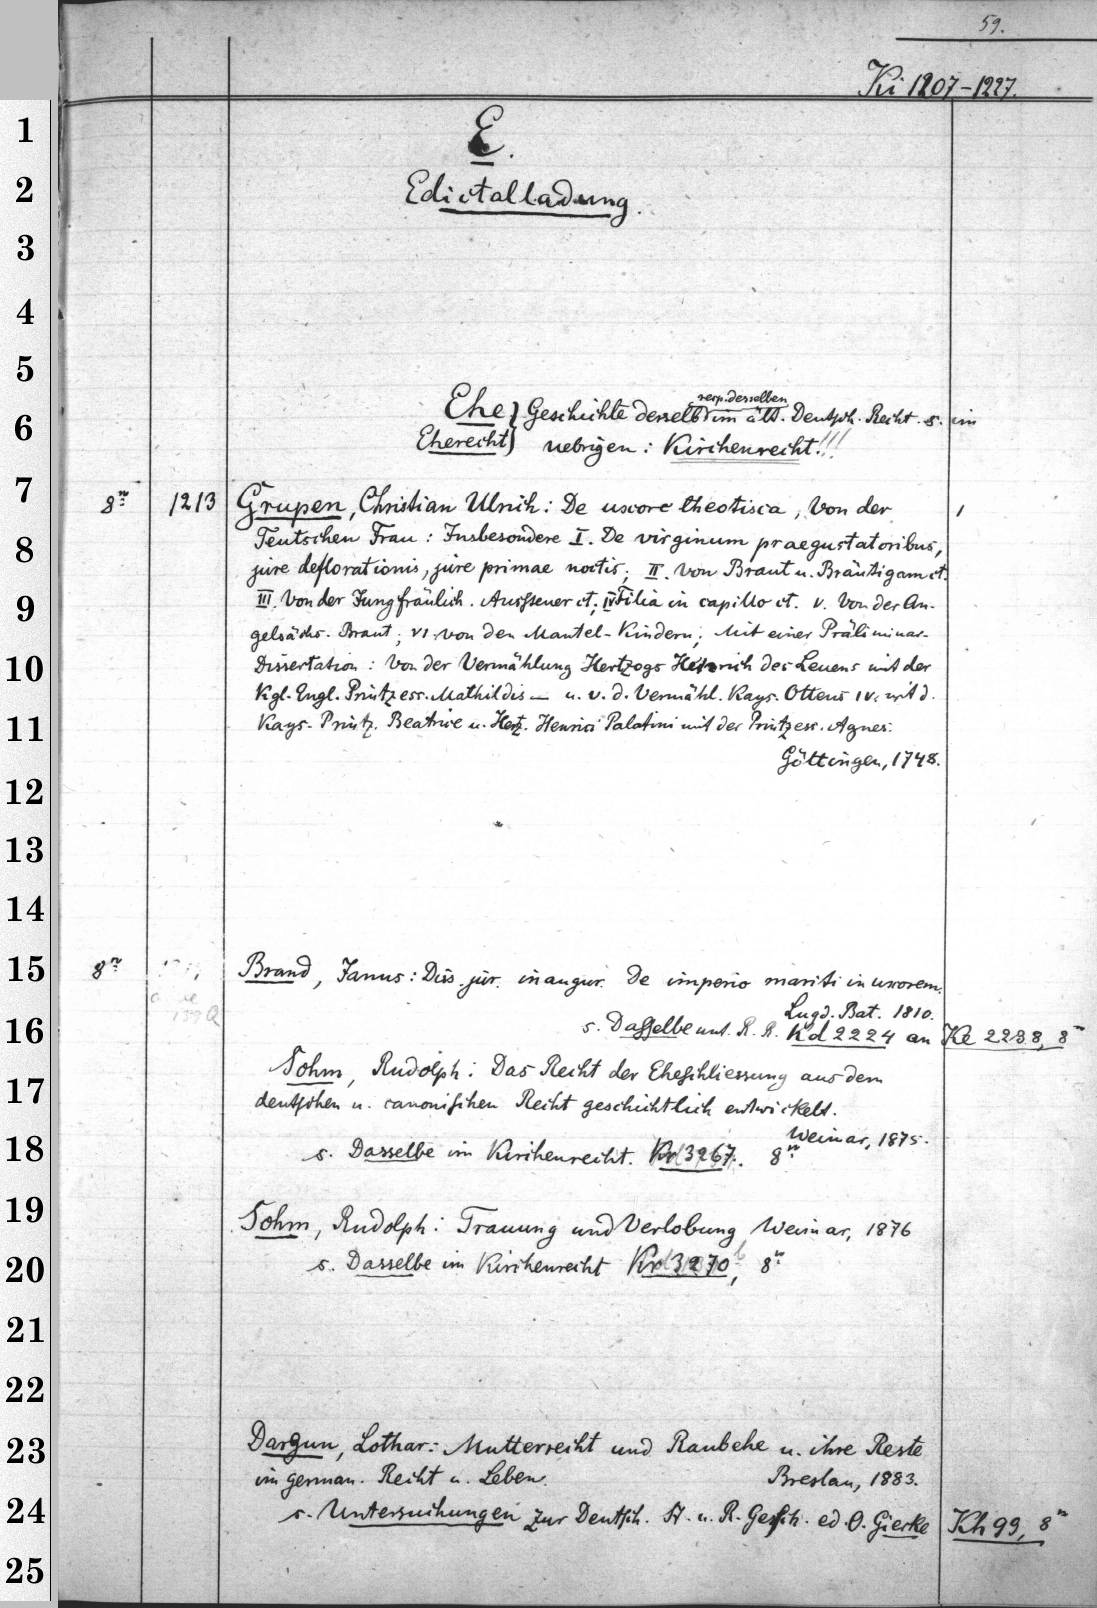 59.
Ki 1207-1227.
E.
Edictalladung.
resp. desselben
Ehe } Geschichte derselb im ält. Deutsch. Recht. s. im
Eherecht } uebrigen: Kirchenrecht!!!
8º 1213 Grupen, Christian Ulrich: De uxore theotisca, Von der 1
Teutschen Frau: Insbesondere I. De virginum praegustatoribus,
jure deflorationis, jure primae noctis; II. Von Braut u. Bräutigam ct.
III. Von der Jungfräulich. Aussteuer ct; IV Filia in capillo ct. V. Von der An-
gelsächs. Braut; VI. von den Mantel-Kindern; Mit einer Präliminar-
Dissertation: Von der Vermählung Hertzogs Heinrich des Leuens mit der
Kgl. Engl. Printzess. Mathildis — u. v. d. Vermähl. Kays. Ottens IV. mit d.
Kays. Printz. Beatrice u. Hertz. Henrici Palatini mit der Printzess. Agnes.
Göttingen, 1748.
8º Brand, Janus: Diss. jur. inaugur. de imperio mariti in uxorem.
Lugd. Bat. 1810.
s. Dasselbe unt. R. R. Kd 2224 an Ke 2238, 8º
Sohm, Rudolph: Das Recht der Eheschliessung aus dem
deutschen u. canonischen Recht geschichtlich entwickelt.
Weimar, 1875.
s. Dasselbe im Kirchenrecht. Kr 3267. 8º
Sohm, Rudolph: Trauung und Verlobung Weimar, 1876
s. Dasselbe im Kirchenrecht Kr 3270, 8º
Dargun, Lothar: Mutterrecht und Raubehe u. ihre Reste
im german. Recht u. Leben. Breslau, 1883.
s. Untersuchungen zur Deutsch. St. u. R. Gesch. ed. O. Gierke Kh 99, 8º
1
2
3
4
5
6
7
8
9
10
11
12
13
14
15
16
17
18
19
20
21
22
23
24
25